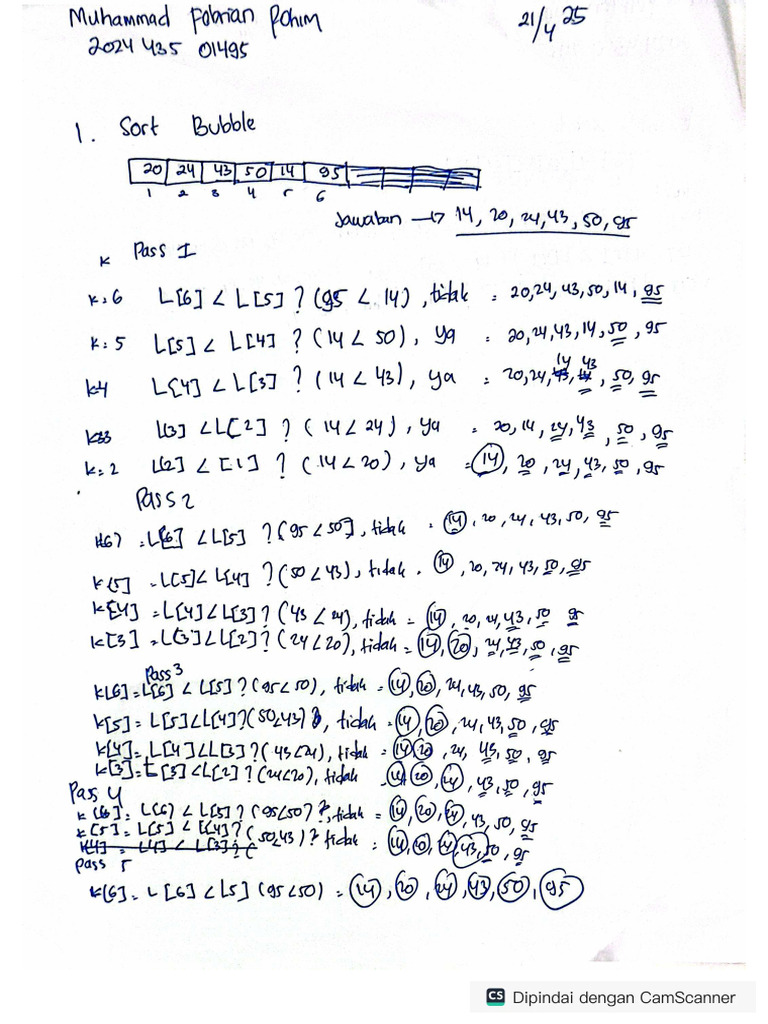 Muhammad Febrian Rohim 21/4 25
2024 435 01495
1. Sort Bubble
20 24 43 50 14 95
1 2 3 4 5 6
Jawaban → 14, 20, 24, 43, 50, 95
K Pass 1
k:6 L[6] < L[5] ? (95 < 14), tidak = 20, 24, 43, 50, 14, 95
k:5 L[5] < L[4] ? (14 < 50), ya = 20, 24, 43, 14, 50, 95
k=4 L[4] < L[3] ? (14 < 43), ya = 20, 24, 14, 43, 50, 95
k=3 L[3] < L[2] ? (14 < 24), ya = 20, 14, 24, 43, 50, 95
k:2 L[2] < [1] ? (14 < 20), ya = 14, 20, 24, 43, 50, 95
Pass 2
k[6] = L[6] < L[5] ? (95 < 50), tidak = 14, 20, 24, 43, 50, 95
k[5] = L[5] < L[4] ? (50 < 43), tidak = 14, 20, 24, 43, 50, 95
k[4] = L[4] < L[3] ? (43 < 24), tidak = 14, 20, 24, 43, 50 95
k[3] = L[3] < L[2] ? (24 < 20), tidak = 14, 20, 24, 43, 50, 95
Pass 3
k[6] = L[6] < L[5] ? (95 < 50), tidak = 14, 20, 24, 43, 50, 95
k[5] = L[5] < L[4] ? (50 < 43) ?, tidak = 14, 20, 24, 43, 50, 95
k[4] = L[4] < L[3] ? (43 < 24), tidak = 14 20, 24, 43, 50, 95
k[3] = L[3] < L[2] ? (24 < 20), tidak = 14, 20, 24, 43, 50, 95
Pass 4
k[6] = L[6] < L[5] ? (95 < 50) ?, tidak = 14, 20, 24, 43, 50, 95
k[5] = L[5] < L[4] ? (50, 43) ? tidak = 14, 20, 24, 43, 50, 95
k[4] = L[4] < L[3] ? (
Pass 5
k[6] = L[6] < L5] (95 < 50) = 14, 20, 24, 43, 50, 95
CS Dipindai dengan CamScanner